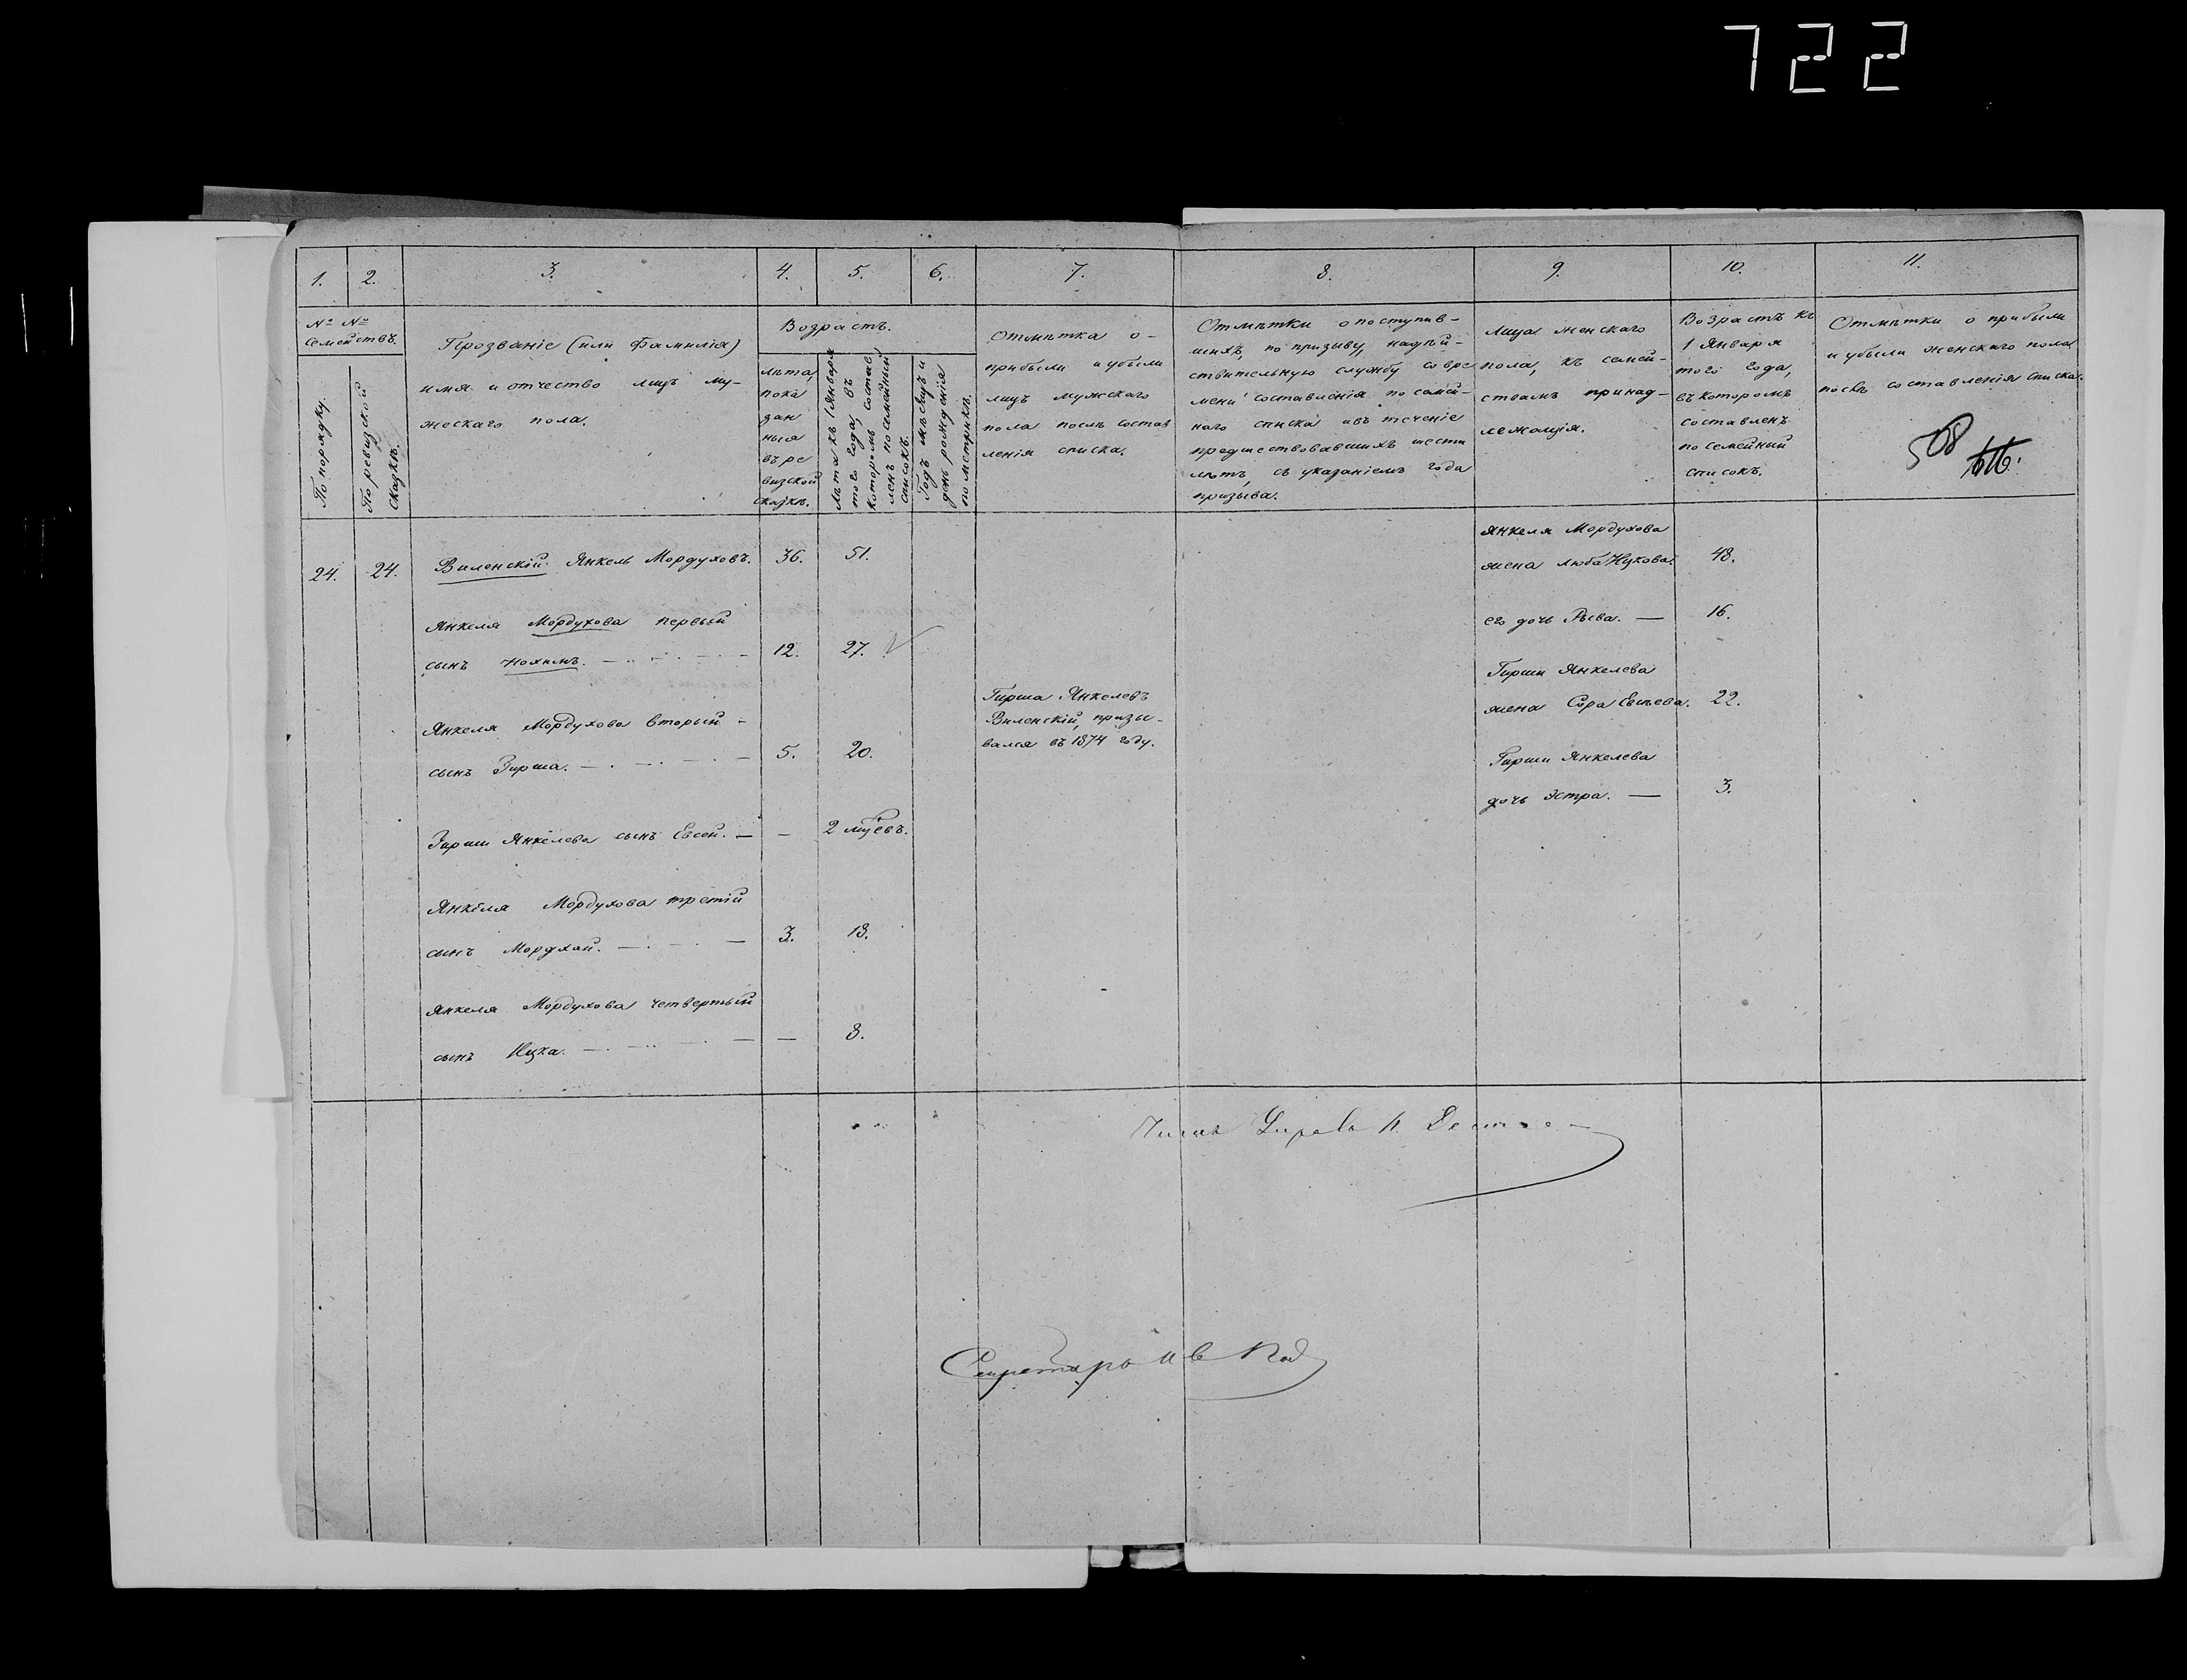 722
1.
2.
3.
4.
5.
6.
7.
8.
9.
10.
11.
№ №
Семействъ.
По порядку.
По ревизской
сказкѣ.
Прозваніе (или Фамилія)
имя и отчество лицъ му-
жескаго пола.
Возрастъ.
Лѣта,
пока
зан
ныя
въ ре
визской
сказкѣ.
Лѣта къ 1 Января
того года, въ
которомъ состав
ленъ посемейный
списокъ.
Годъ мѣсяцъ и
день рожденія
по метрикѣ.
Отмѣтка о-
прибыли и убыли
лицъ мужскаго
пола послѣ состав
ленія списка.
Отмѣтки о поступив-
шихъ, по призыву, на дѣй-
ствительную службу со вре
мени составленія посемей-
наго списка и въ теченіе
предшествовавшихъ шести
лѣтъ, съ указаніемъ года
призыва.
Лица женскаго
пола, къ семей-
ствамъ принад-
лежащія.
Возрастъ къ
1 Января
того года,
въ которомъ
составленъ
посемейный
списокъ.
Отмѣтки о прибыли
и убыли женскаго пола
послѣ составленія списка.
508
24.
24.
Виленскій Янкель Мордуховъ.
36.
51.
Янкеля Мордухова
жена Люба Ицкова.
48.
Янкеля Мордухова первый
сынъ Нохимъ. — — —
12.
27.
его дочь Рыва. —
16.
Янкеля Мордухова вторый -
сынъ Гирша. — — —
5.
20.
Гирша Янкелевъ
Виленскій, призы-
вался въ 1874 году.
Гирши Янкелева
жена Сора Евсѣева.
22.
Гирши Янкелева сынъ Евсей. —
—
2 мцевъ.
Гирши Янкелева
дочь Эстра. —
3.
Янкеля Мордухова третій
сынъ Мордхай. — — —
3.
18.
Янкеля Мордухова четвертый
сынъ Ицка. — — —
—
8.
Членъ Управы
Секретарь